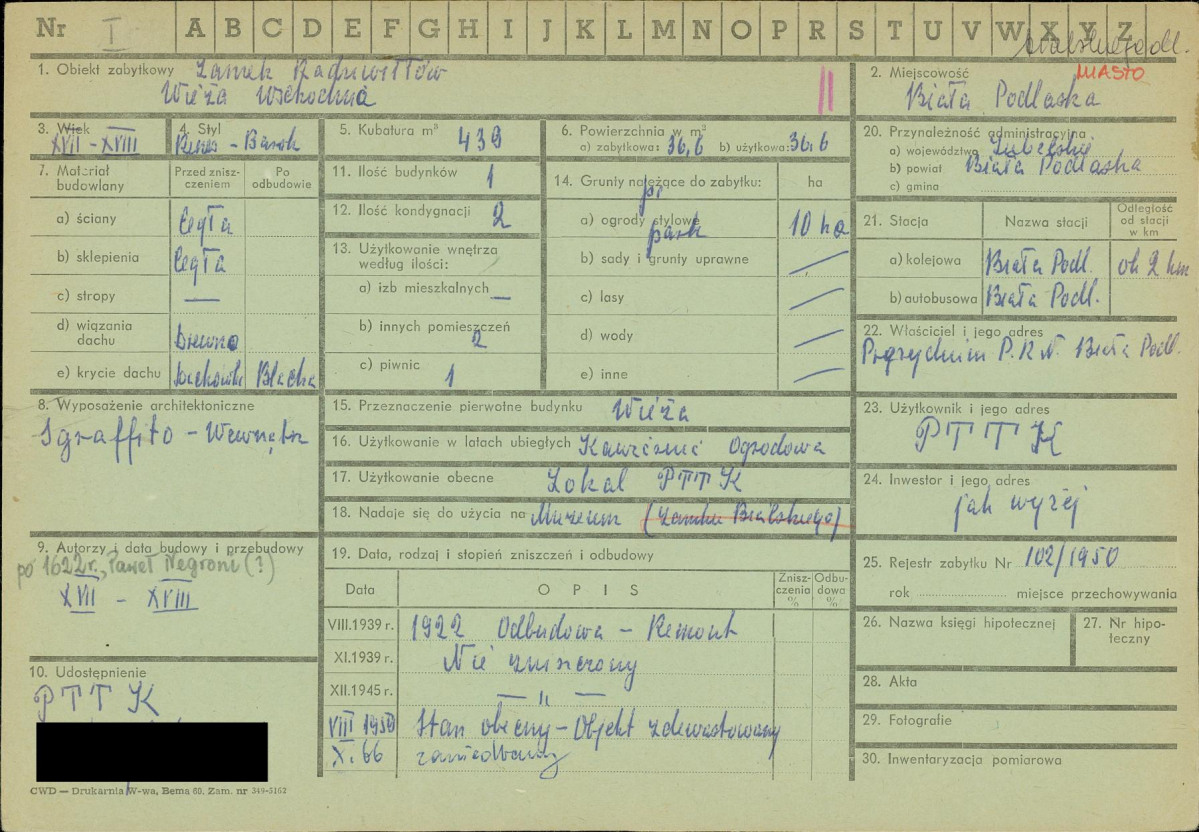 Nr I A B C D E F G H I J K L M N O P R S T U V W X Y Z
1. Obiekt zabytkowy Zamek Radziwiłłów
Wieża Wschodnia
II
2. Miejscowość MIASTO
Biała Podlaska
3. Wiek
XVII - XVIII
4. Styl
Renes - Barok
5. Kubatura m³ 439
6. Powierzchnia w m²
a) zabytkowa: 36,6 b) użytkowa: 36,6
20. Przynależność administracyjna
a) województwo Lubelskie
b) powiat Biała Podlaska
c) gmina
7. Materiał budowlany
Przed zniszczeniem
Po odbudowie
a) ściany cegła
b) sklepienia cegła
c) stropy —
d) wiązania dachu Drewno
e) krycie dachu Dachówka Blacha
11. Ilość budynków 1
12. Ilość kondygnacji 2
13. Użytkowanie wnętrza
według ilości:
a) izb mieszkalnych —
b) innych pomieszczeń
2
c) piwnic 1
14. Grunty należące do zabytku: ha
a) ogrody stylowe park 10 ha
b) sady i grunty uprawne /
c) lasy /
d) wody /
e) inne /
21. Stacja
Nazwa stacji
Odległość od stacji w km
a) kolejowa Biała Podl. ok 2 km
b) autobusowa Biała Podl.
22. Właściciel i jego adres
Prezydium P.R.N. Biała Podl.
8. Wyposażenie architektoniczne
Sgraffito - Wewnątrz
15. Przeznaczenie pierwotne budynku Wieża
16. Użytkowanie w latach ubiegłych Kawiarnia Ogrodowa
17. Użytkowanie obecne Lokal PTTK
18. Nadaje się do użycia na Muzeum (Zamku Bialskiego)
23. Użytkownik i jego adres
PTTK
24. Inwestor i jego adres
jak wyżej
9. Autorzy i data budowy i przebudowy
po 1622 r., Paweł Negroni (?)
XVII - XVIII
19. Data, rodzaj i stopień zniszczeń i odbudowy
Data
O P I S
Zniszczenia %
Odbudowa %
VIII.1939 r. 1922 Odbudowa - Remont
XI.1939 r. Nie zniszczony
XII.1945 r. — " —
VIII 1950 Stan obecny - Objekt zdewastowany
X. 66 zaniedbany
25. Rejestr zabytku Nr 102/1950
rok miejsce przechowywania
26. Nazwa księgi hipotecznej
27. Nr hipoteczny
10. Udostępnienie
PTTK
28. Akta
29. Fotografie
30. Inwentaryzacja pomiarowa
CWD — Drukarnia W-wa, Bema 60, Zam. nr 349-3162